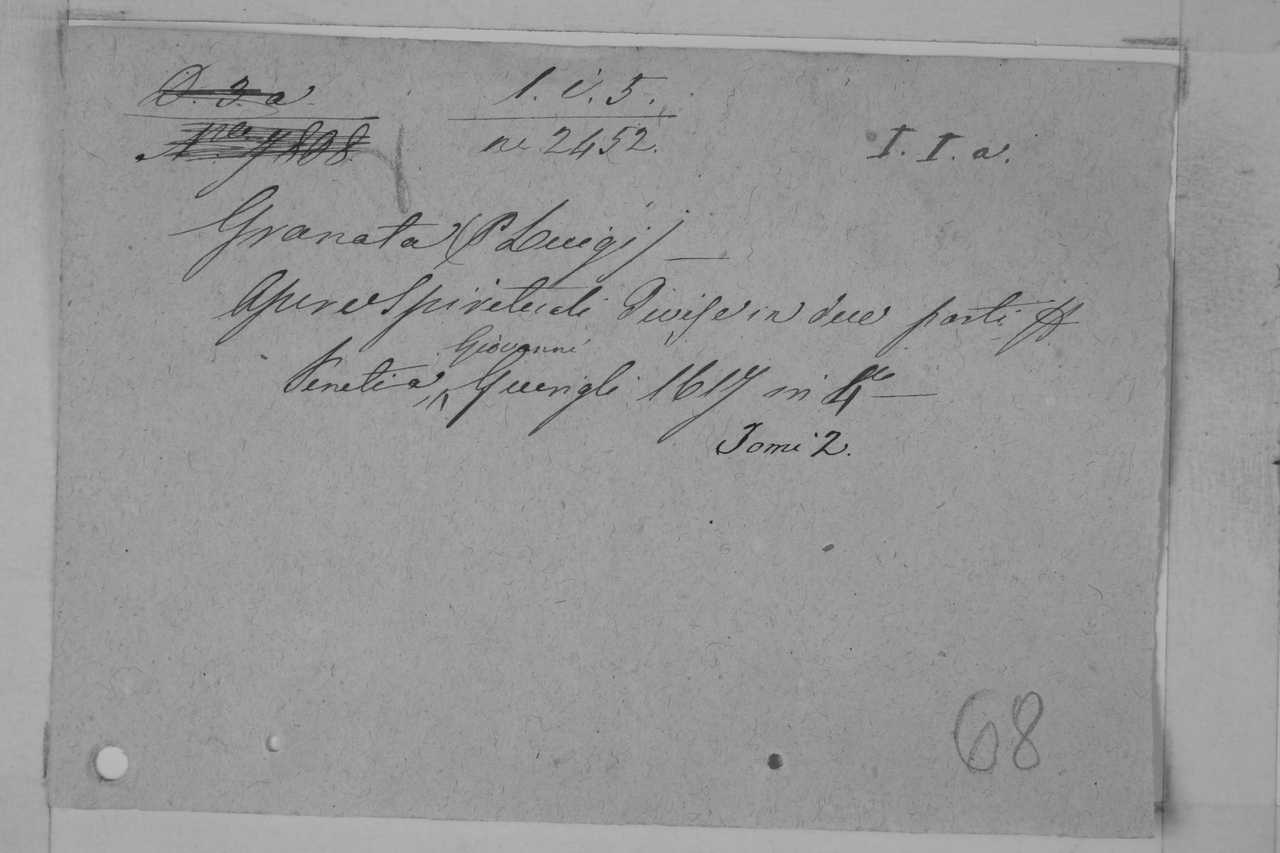 D. 3. a
1. V. 5.
N.ro 7808
no 2452.
I. I. a.
Granata (P Luigi)
Opere Spirituali Divise in due parti ff
Giovanni
Venetia, Guerigli 1617 in 4to
Tomi 2.
68